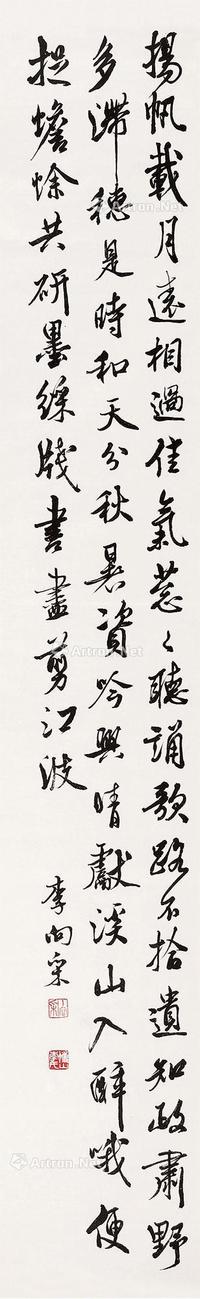 揚帆載月遠相過佳氣葱々聽誦歌路不拾遺知政肅野
多滯穗是時和天分秋暑資吟興晴獻溪山入醉哦便
捉蟾蜍共研墨綵牋書盡剪江波
李向采
Artron.Net
Artron.Net
Artron.Net
Artron.Net